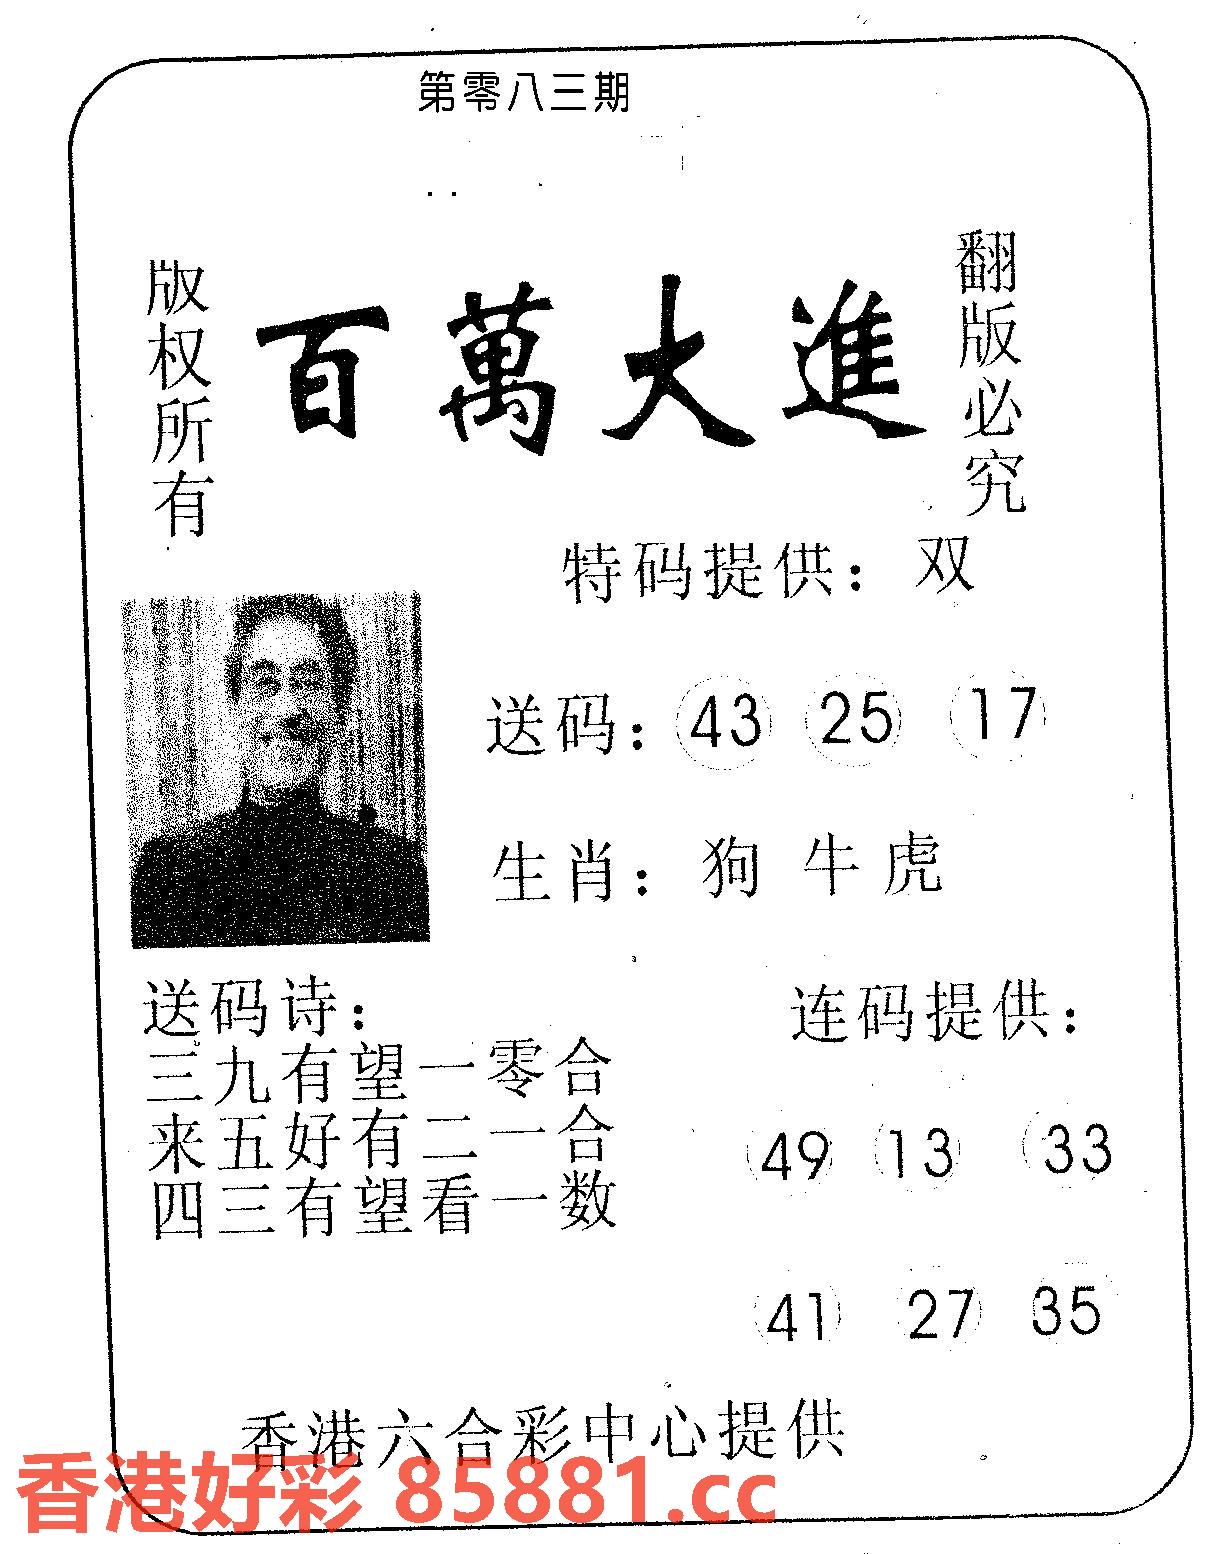 第零八三期
版权所有
百萬大進
翻版必究
特码提供：双
送码：43 25 17
生肖：狗 牛 虎
送码诗：
三九有望一零合
来五好有二一合
四三有望看一数
连码提供：
49 13 33
41 27 35
香港六合彩中心提供
香港好彩 85881.cc